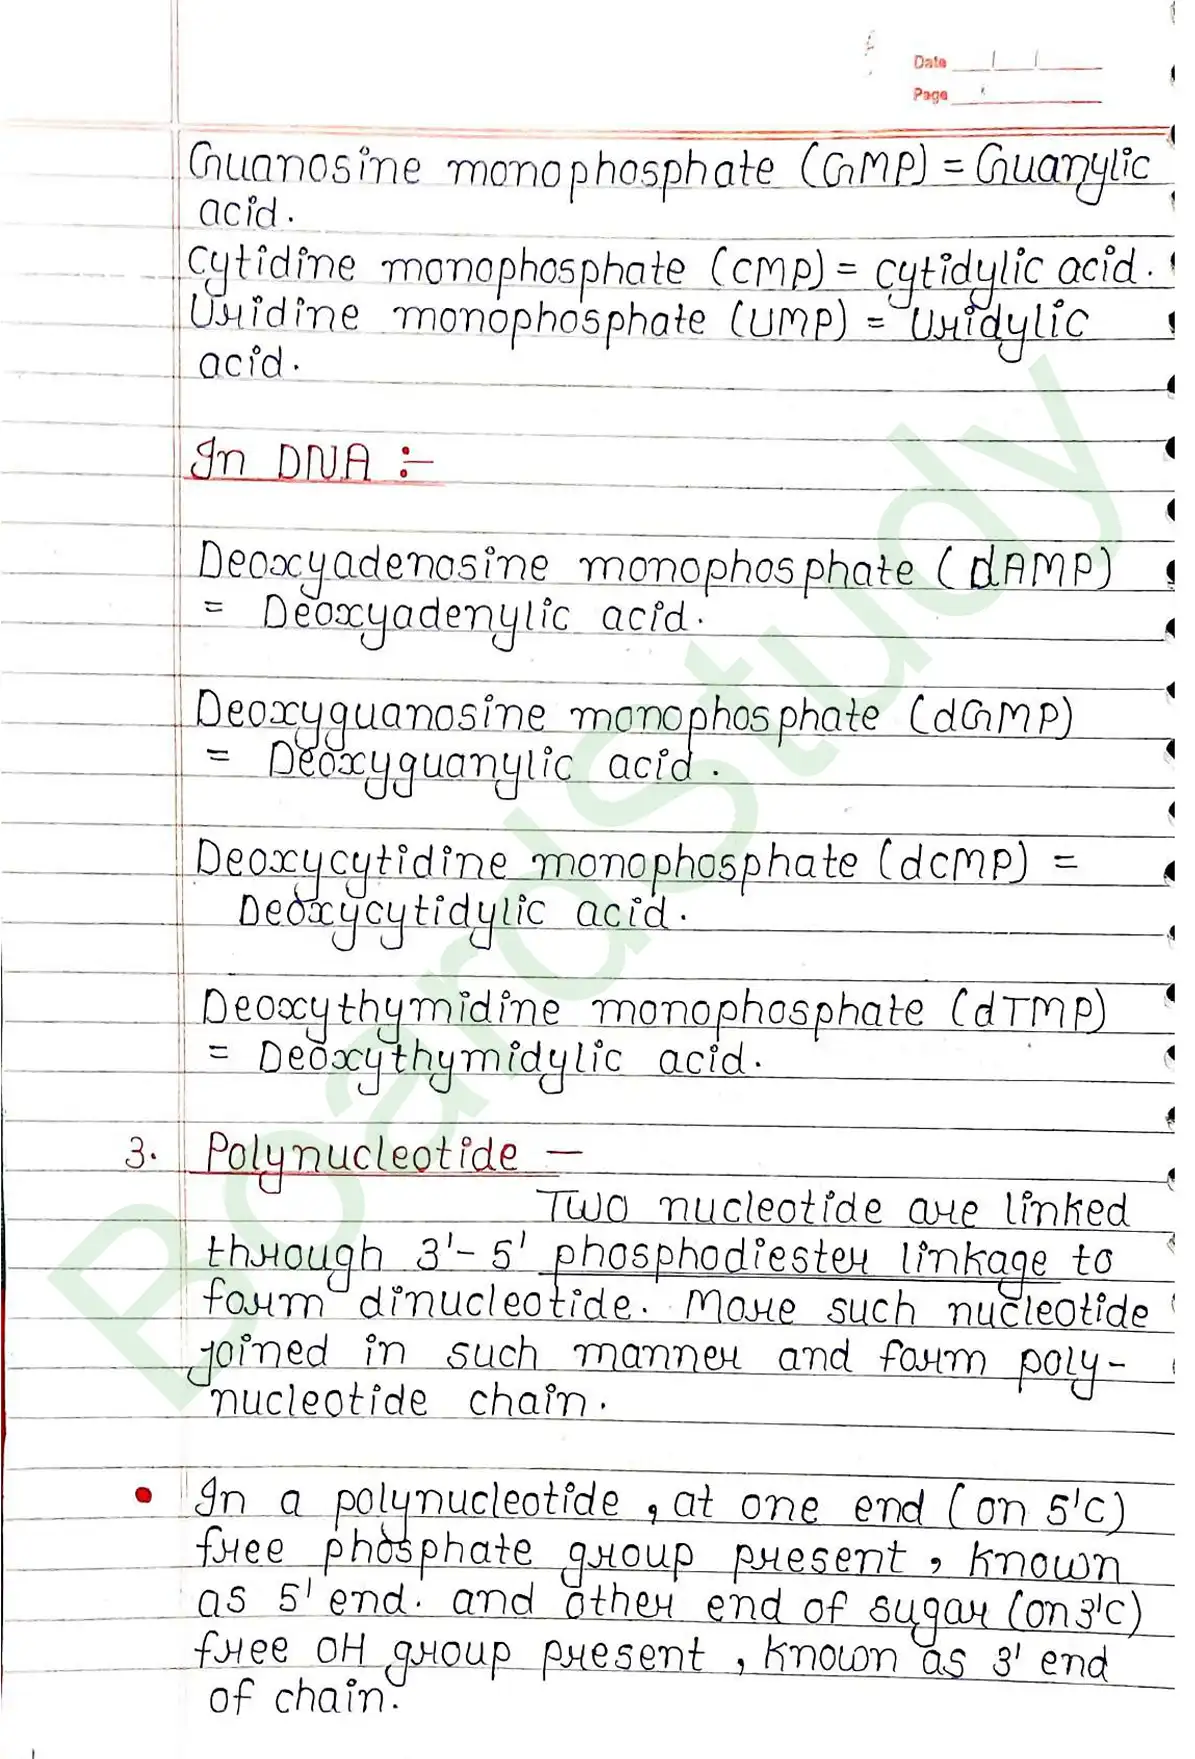 Date
Page
Guanosine monophosphate (GMP) = Guanylic
acid.
Cytidine monophosphate (CMP) = Cytidylic acid.
Uridine monophosphate (UMP) = Uridylic
acid.
In DNA :-
Deoxyadenosine monophosphate (dAMP)
= Deoxyadenylic acid.
Deoxyguanosine monophosphate (dGMP)
= Deoxyguanylic acid.
Deoxycytidine monophosphate (dCMP) =
Deoxycytidylic acid.
Deoxythymidine monophosphate (dTMP)
= Deoxythymidylic acid.
3. Polynucleotide –
Two nucleotide are linked
through 3'-5' phosphodiester linkage to
form dinucleotide. More such nucleotide
joined in such manner and form poly-
nucleotide chain.
• In a polynucleotide, at one end (on 5'C)
free phosphate group present, known
as 5' end. and other end of sugar (on 3'C)
free OH group present, known as 3' end
of chain.
BoardStudy